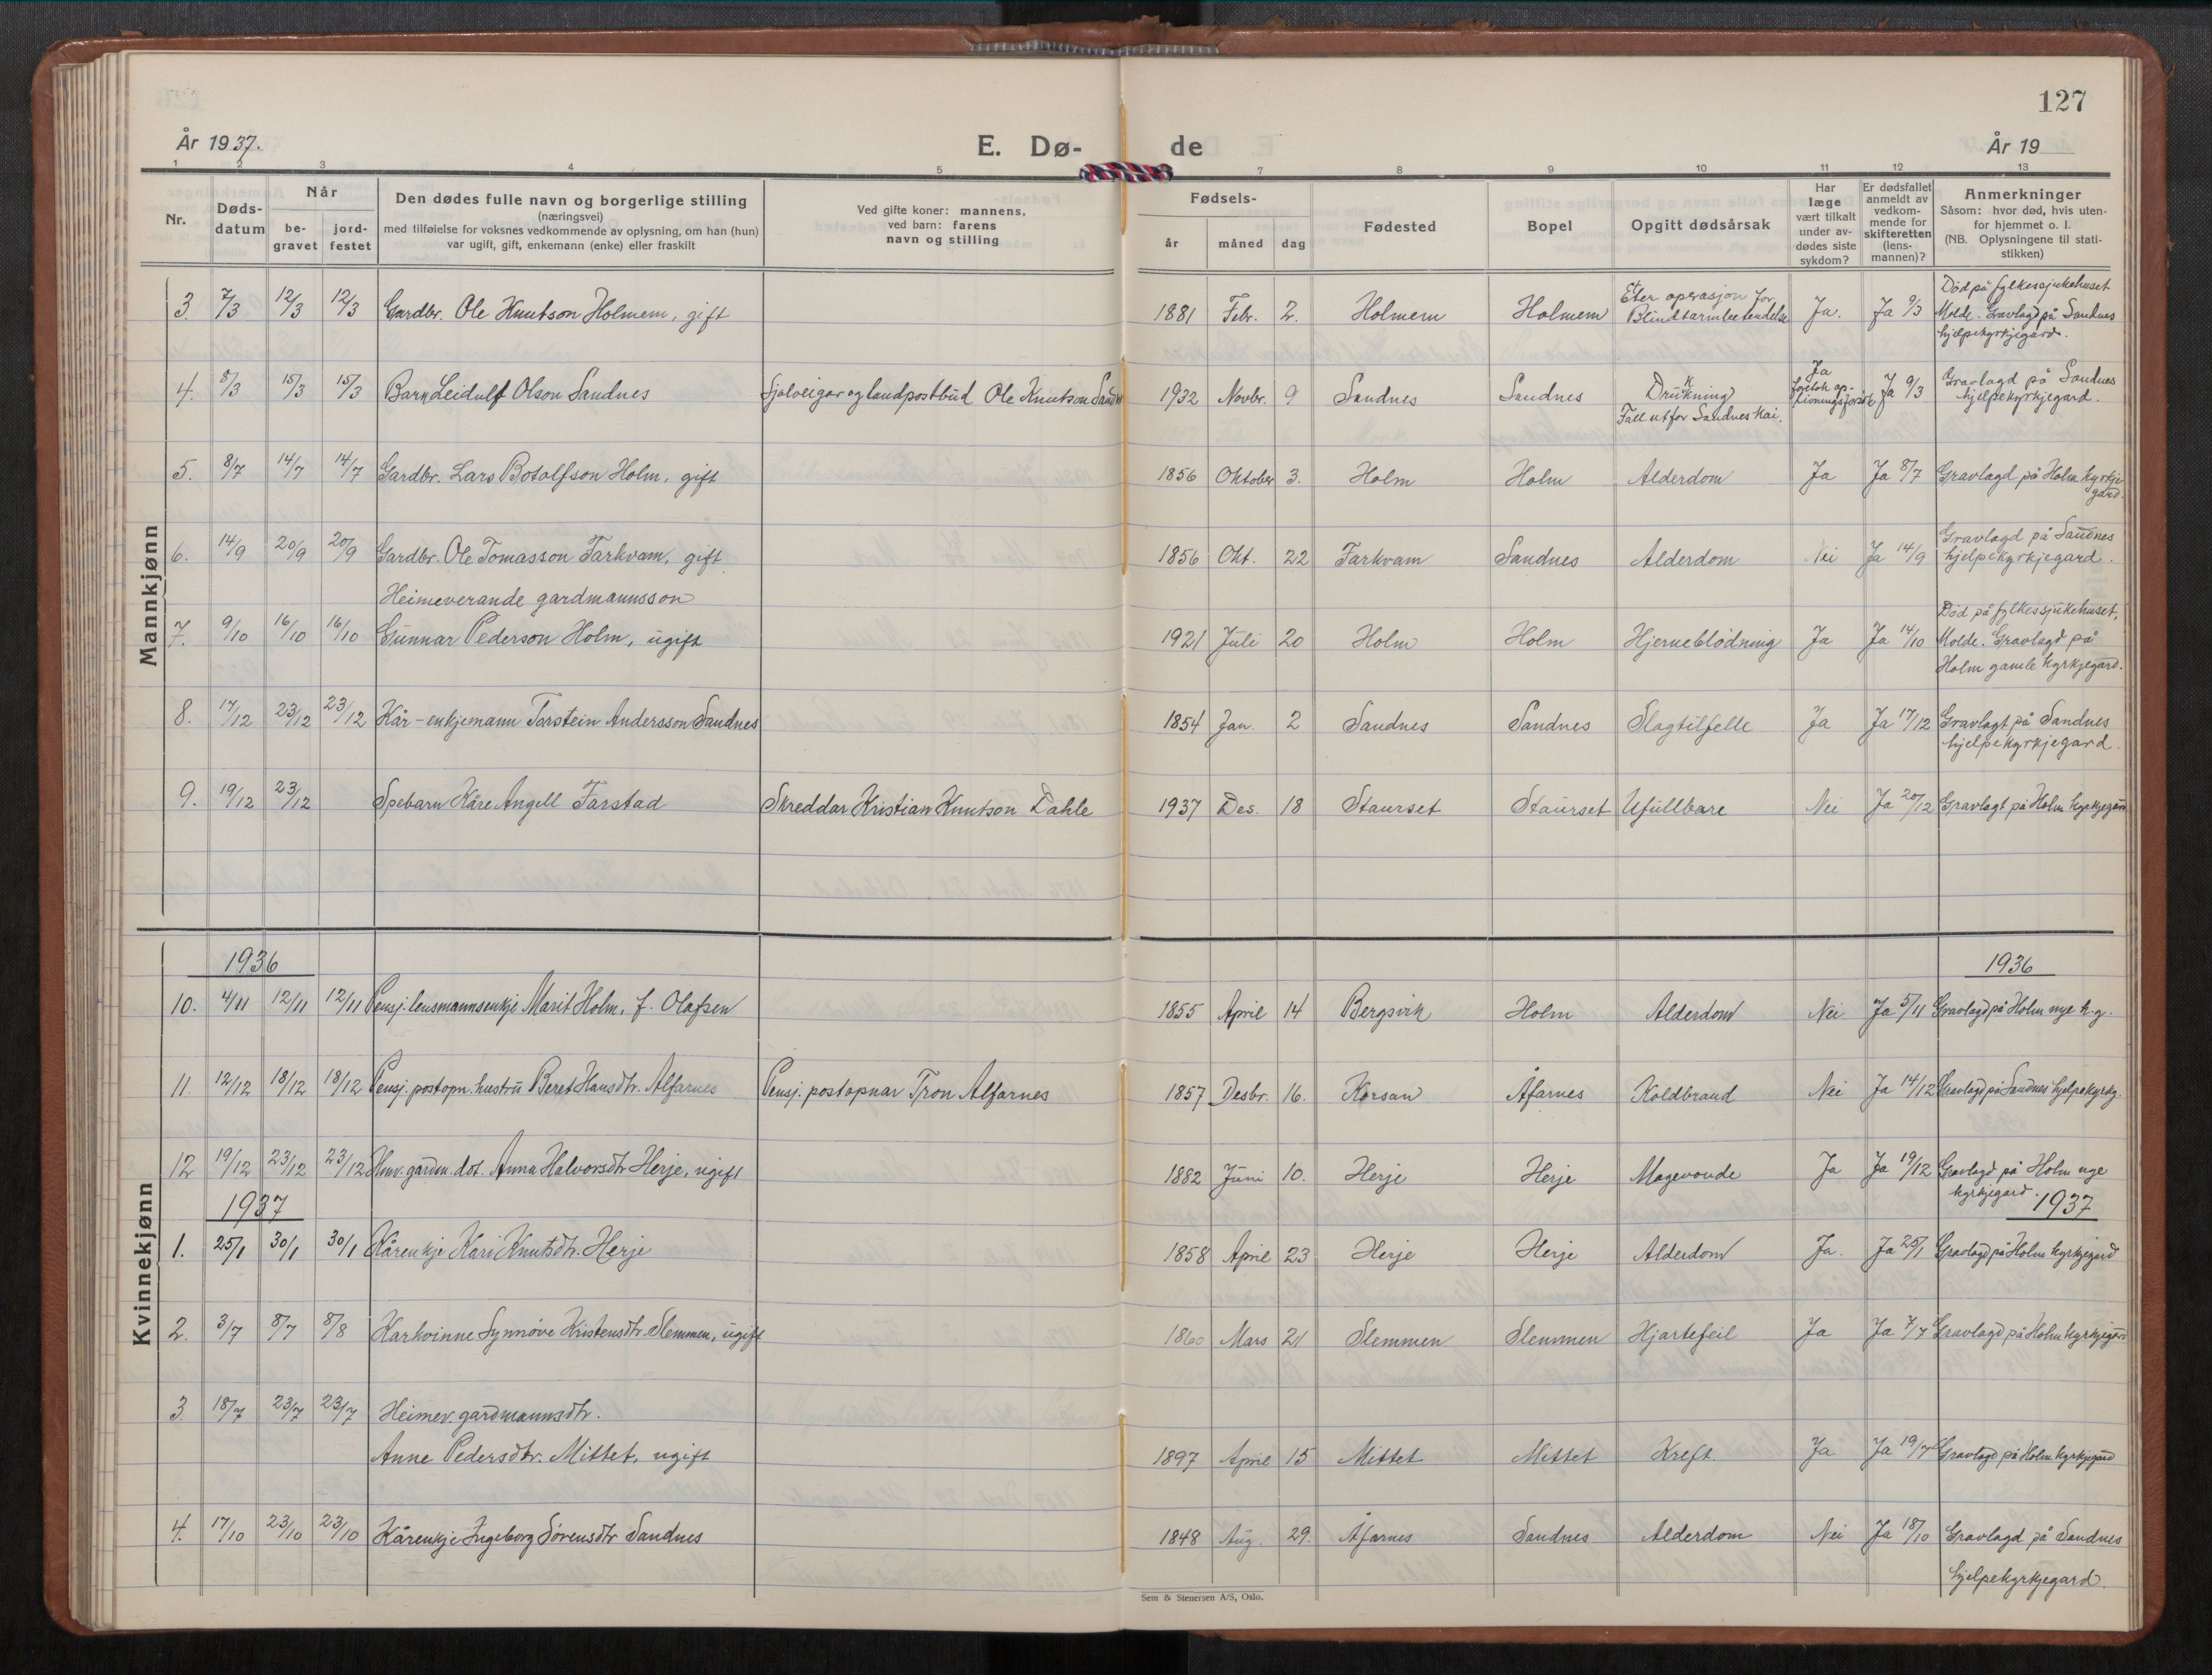 127
År 1937.
E. Dø-
de
År 19
1 2 3 4 5 7 8 9 10 11 12 13
Nr.
Døds-
datum
Når
be-
gravet
jord-
festet
Den dødes fulle navn og borgerlige stilling
(næringsvei)
med tilføielse for voksnes vedkommende av oplysning, om han (hun)
var ugift, gift, enkemann (enke) eller fraskilt
Ved gifte koner: mannens,
ved barn: farens
navn og stilling
Fødsels-
år måned dag
Fødested
Bopel
Opgitt dødsårsak
Har
læge
vært tilkalt
under av-
dødes siste
sykdom?
Er dødsfallet
anmeldt av
vedkom-
mende for
skifteretten
(lens-
mannen)?
Anmerkninger
Såsom: hvor død, hvis uten-
for hjemmet o. l.
(NB. Oplysningene til stati-
stikken)
Mannkjønn
3. 7/3 12/3 12/3 Gardbr. Ole Knutson Holmem, gift 1881 Febr. 2. Holmem Holmem Eter operasjon for
Blindtarmbetendelse Ja. Ja 9/3 Død på fylkessjukehuset
Molde. Gravlagd på Sandnes
hjelpekyrkjegard.
4. 8/3 15/3 15/3 Barn Leidulf Olson Sandnes Sjølveigar og landpostbud Ole Knutson Sandnes 1932 Novbr. 9 Sandnes Sandnes Drukning
Fall utfor Sandnes kai. Ja
foretok op-
livningsforsøk Ja 9/3 Gravlagd på Sandnes
hjelpekyrkjegard.
5. 8/7 14/7 14/7 Gardbr. Lars Botolfson Holm, gift 1856 Oktober 3. Holm Holm Alderdom Ja Ja 8/7 Gravlagd på Holm kyrkje-
gard.
6. 14/9 20/9 20/9 Gardbr. Ole Tomasson Farkvam, gift 1856 Okt. 22 Farkvam Sandnes Alderdom Nei Ja 14/9 Gravlagd på Sandnes
hjelpekyrkjegard.
Heimeverande gardmannsson
7. 9/10 16/10 16/10 Gunnar Pederson Holm, ugift 1921 Juli 20 Holm Holm Hjerneblødning Ja Ja 14/10 Død på fylkessjukehuset,
Molde. Gravlagd på
Holm gamle kyrkjegard.
8. 17/12 23/12 23/12 Kår-enkjemann Torstein Andersson Sandnes 1854 Jan. 2 Sandnes Sandnes Slagtilfelle Ja Ja 17/12 Gravlagt på Sandnes
hjelpekyrkjegard.
9. 19/12 23/12 Spebarn Kåre Angell Farstad Skreddar Kristian Knutson Dahle 1937 Des. 18 Staurset Staurset Ufullbåre Nei Ja 20/12 Gravlagt på Holm kyrkjegard
Kvinnekjønn
1936 1936
10. 4/11 12/11 12/11 Pensj. lensmannsenkje Marit Holm, f. Olafsen 1855 April 14 Bergsvik Holm Alderdom Nei Ja 5/11 Gravlagd på Holm nye k.g.
11. 12/12 18/12 18/12 Pensj. postopn. hustru Beret Hansdtr. Alfarnes Pensj. postopnar Tron Alfarnes 1857 Desbr. 16. Korsan Åfarnes Koldbrand Nei Ja 14/12 Gravlagd på Sandnes hjelpekyrkg.
12 19/12 23/12 23/12 Hmv. gardm. dot. Anna Halvorsdtr Herje, ugift 1882 Juni 10. Herje Herje Magevonde Ja Ja 19/12 Gravlagd på Holm nye
kyrkjegard.
1937 1937
1. 25/1 30/1 30/1 Kårenkje Kari Knutsdtr. Herje 1858 April 23 Herje Herje Alderdom Ja. Ja 25/1 Gravlagd på Holm kyrkjegard
2. 3/7 8/7 8/8 Karkvinne Synnøve Kristensdtr. Slemmen, ugift 1860 Mars 21 Slemmen Slemmen Hjartefeil Ja Ja 7/7 Gravlagd på Holm kyrkjegard
3. 18/7 23/7 23/7 Heimev. gardmannsdtr.
Anne Pedersdtr. Mittet, ugift 1897 April 15 Mittet Mittet Kreft Ja Ja 19/7 Gravlagd på Holm kyrkjegard
4. 17/10 23/10 23/10 Kårenkje Ingeborg Sørensdtr Sandnes 1848 Aug. 29. Åfarnes Sandnes Alderdom Nei Ja 18/10 Gravlagd på Sandnes
hjelpekyrkjegard.
Sem & Stenersen A/S, Oslo.